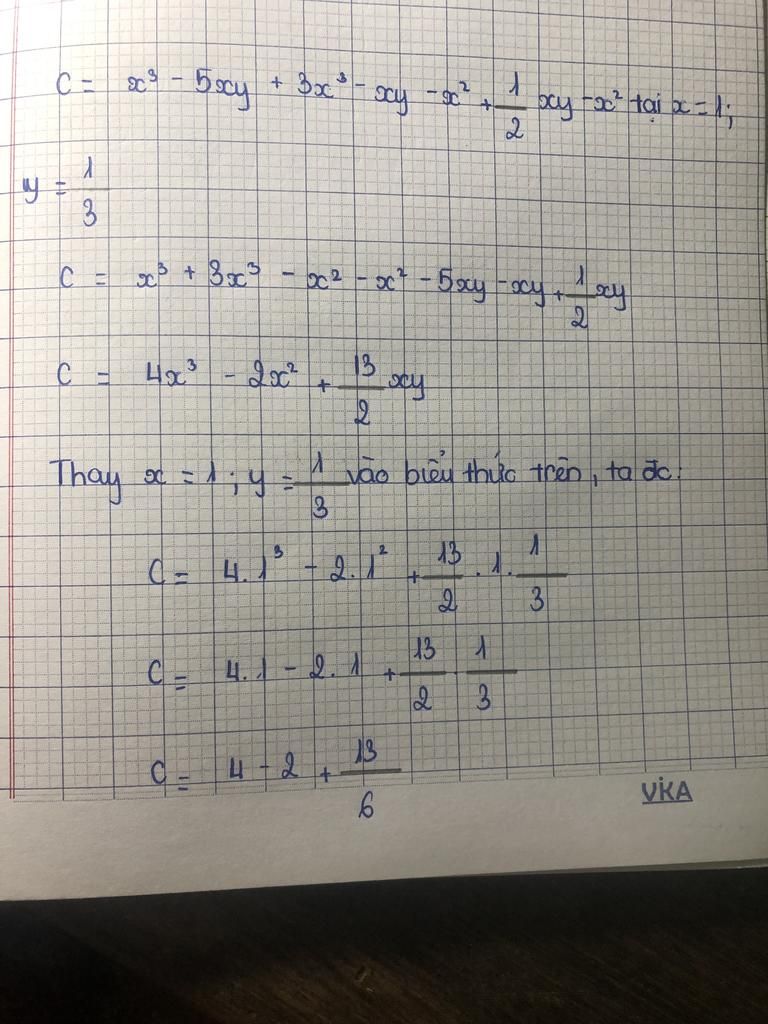 C = x³ - 5xy + 3x³ - xy - x² + 1/2 xy - x² tại x = 1;
y = 1/3
C = x³ + 3x³ - x² - x² - 5xy - xy + 1/2 xy
C = 4x³ - 2x² + 13/2 xy
Thay x = 1; y = 1/3 vào biểu thức trên, ta đc:
C = 4.1³ - 2.1² + 13/2 . 1 . 1/3
C = 4.1 - 2.1 + 13/2 . 1/3
C = 4 - 2 + 13/6
VIKA